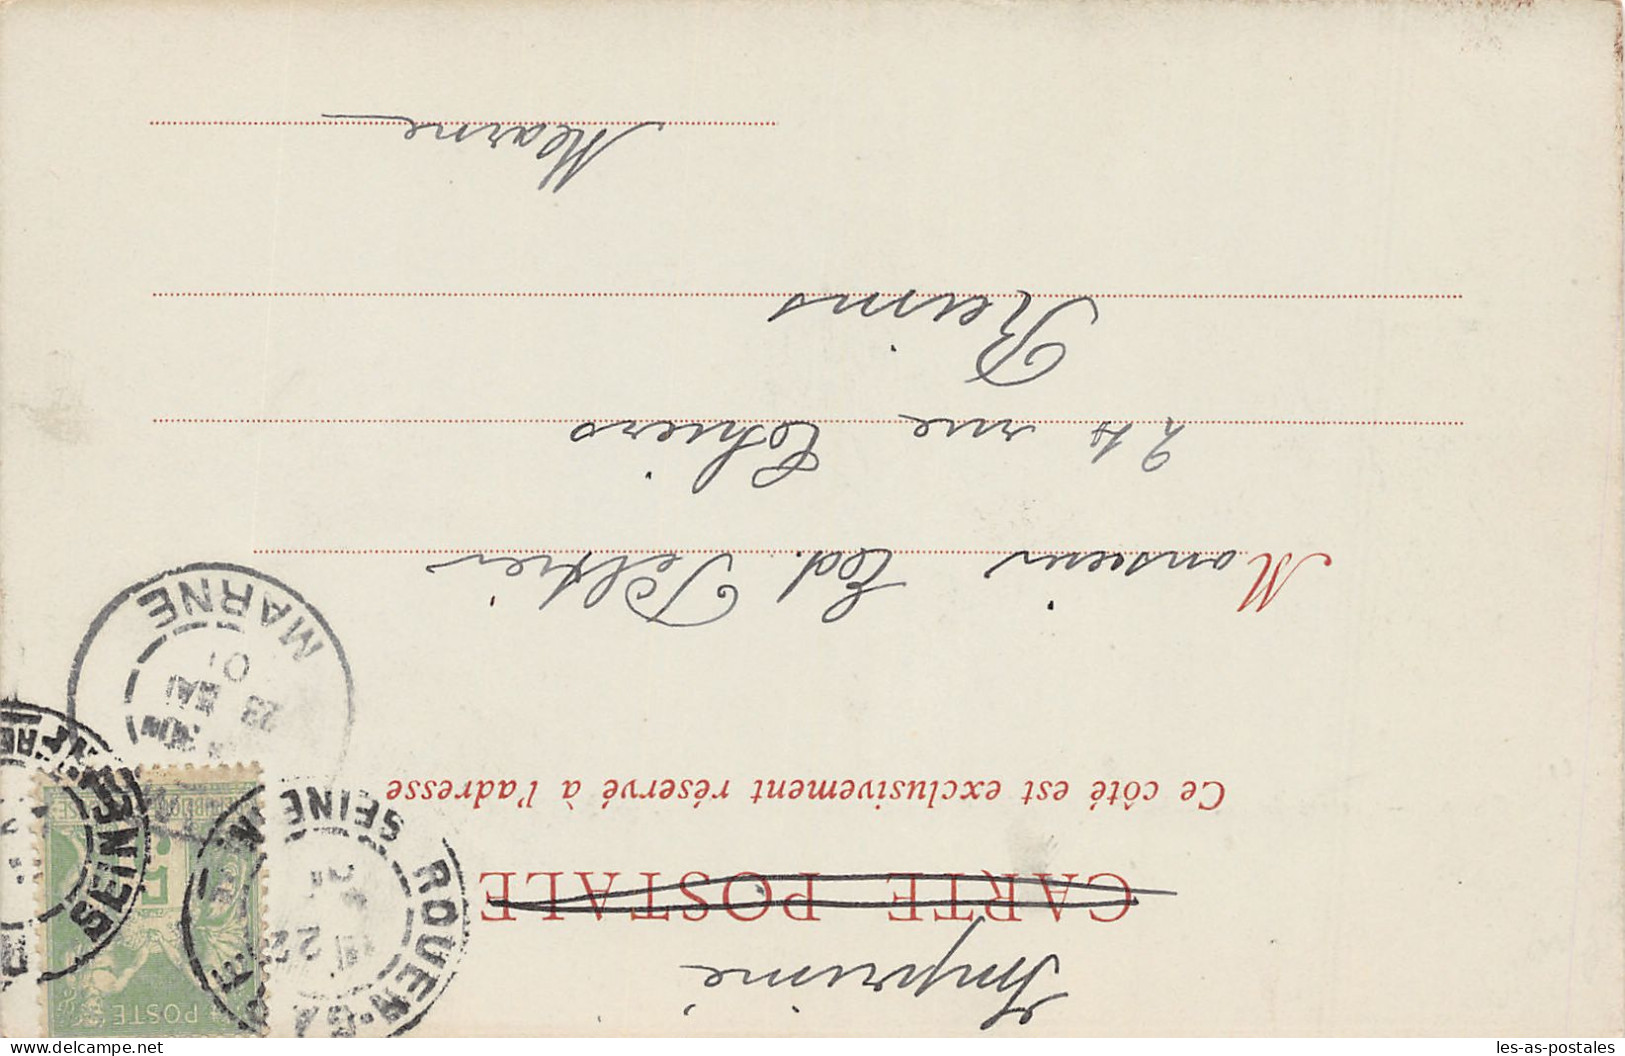 Imprimé
CARTE POSTALE
Ce côté est exclusivement réservé à l'adresse
Monsieur Ed. Peltier
rue Thiers
Reims
Marne
ROUEN-GARE
SEINE INFRE
22
SEINE INFRE
MARNE
23 MAI
01
POSTE
les-as-postales